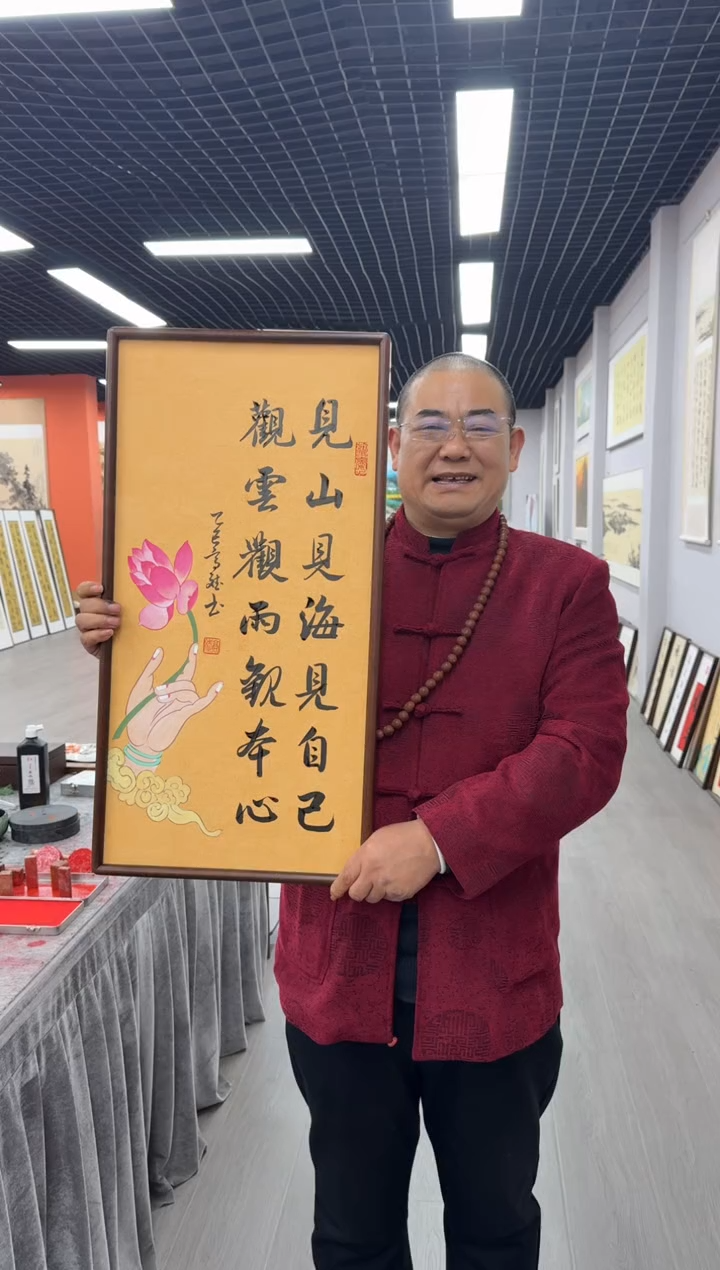 見山見海見自己
觀雲觀雨觀本心
乙巳
书